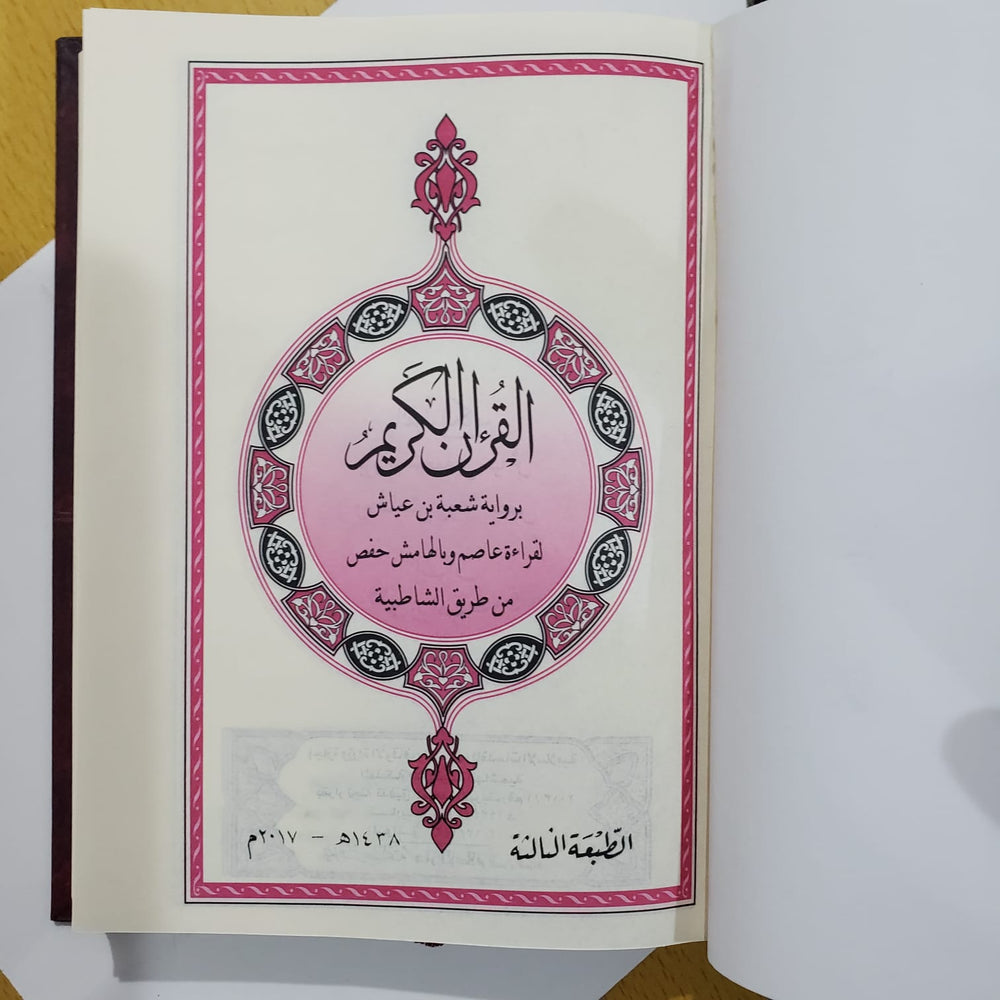 القُرءان الكَرِيمُ
برواية شعبة بن عياش
لقراءة عاصم وبالهامش حفص
من طريق الشاطبية
الطَّبْعَة الثالثة
١٤٣٨هـ - ٢٠١٧م